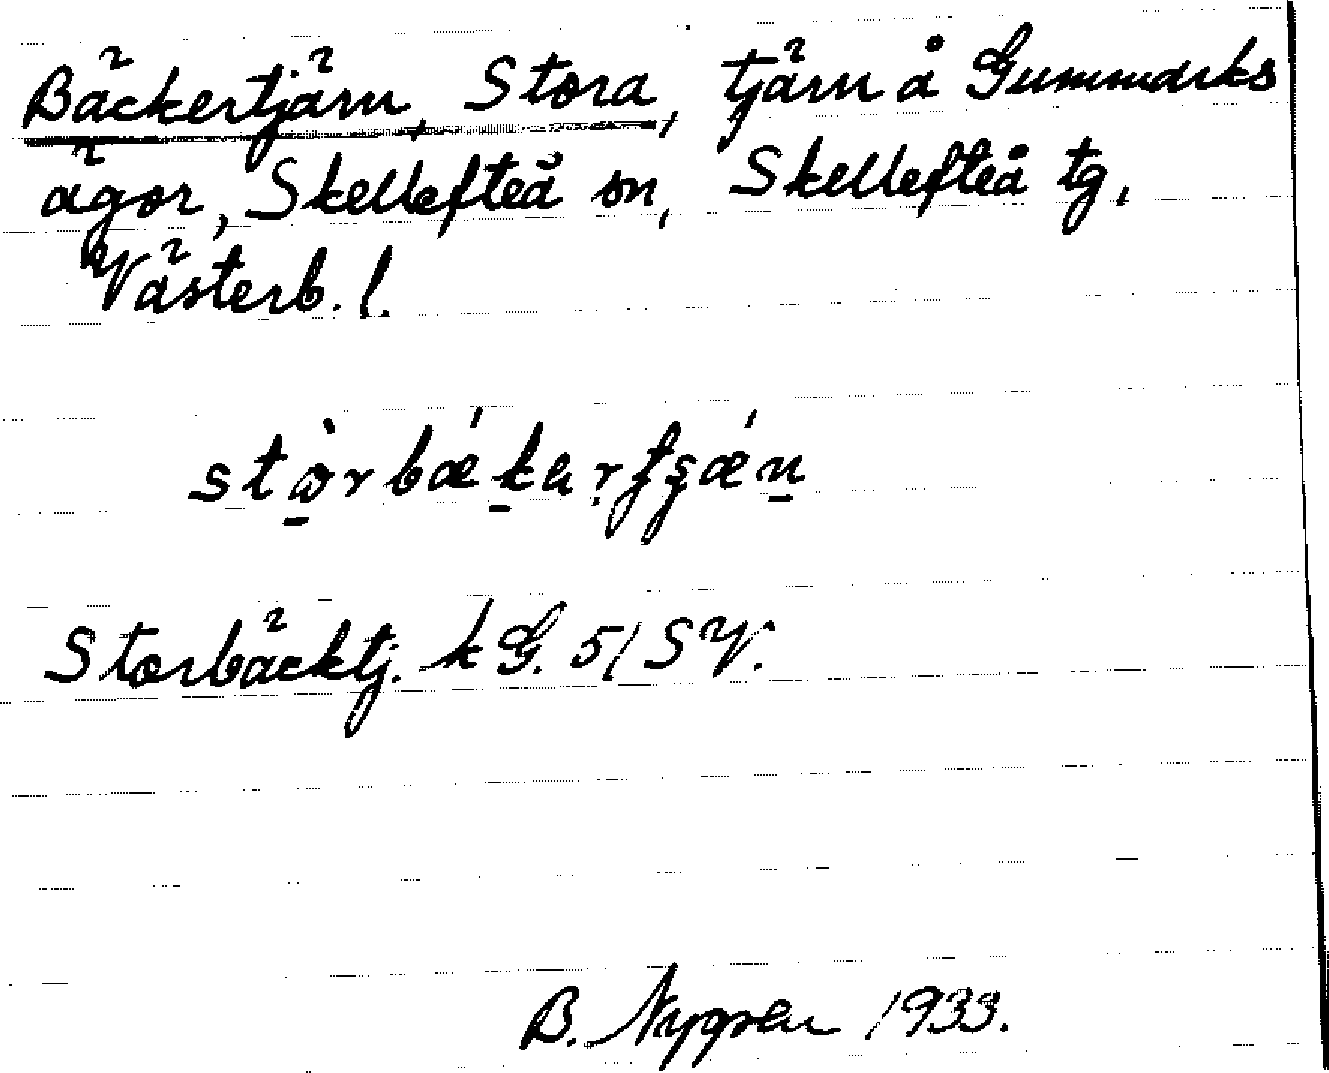 Bäckertjärn, Stora, tjärn å Gummarks
ägor, Skellefteå sn, Skellefteå tg,
Västerb. l.
Storbäcktj. kG. 5/SV.
B. Nygren 1933.